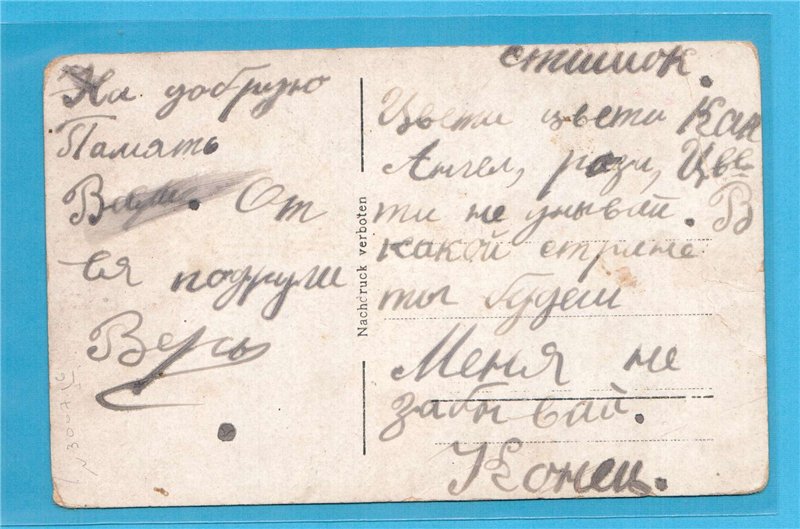 На добрую
Память
От
ея подруги
Веры
Nachdruck verboten
стишок.
Цвети цвети Как
Ангел, рози, Цве
ти не унывай. В
какой стране
ты будеш
Меня не
забывай.
Конец.